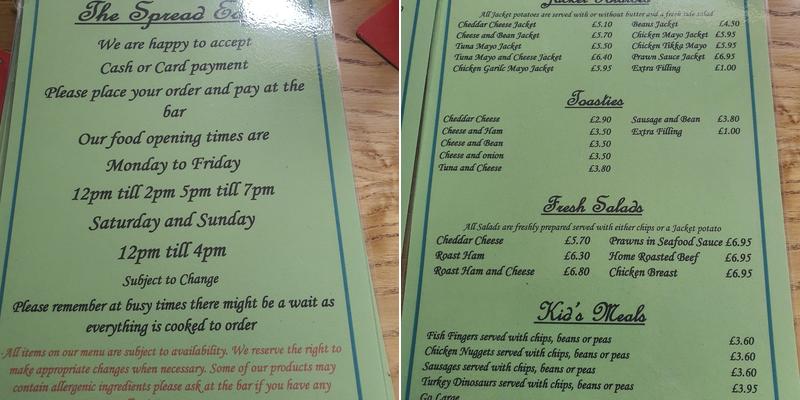 The Spread
We are happy to accept
Cash or Card payment
Please place your order and pay at the
bar
Our food opening times are
Monday to Friday
12pm till 2pm 5pm till 7pm
Saturday and Sunday
12pm till 4pm
Subject to Change
Please remember at busy times there might be a wait as
everything is cooked to order
All items on our menu are subject to availability. We reserve the right to
make appropriate changes when necessary. Some of our products may
contain allergenic ingredients please ask at the bar if you have any
Jacket Potatoes
All Jacket potatoes are served with or without butter and a fresh side salad
Cheddar Cheese Jacket £5.10 Beans Jacket £4.50
Cheese and Bean Jacket £5.70 Chicken Mayo Jacket £5.95
Tuna Mayo Jacket £5.50 Chicken Tikka Mayo £5.95
Tuna Mayo and Cheese Jacket £6.40 Prawn Sauce Jacket £6.95
Chicken Garilc Mayo Jacket £5.95 Extra Filling £1.00
Toasties
Cheddar Cheese £2.90 Sausage and Bean £3.80
Cheese and Ham £3.50 Extra Filling £1.00
Cheese and Bean £3.50
Cheese and onion £3.50
Tuna and Cheese £3.80
Fresh Salads
All Salads are freshly prepared served with either chips or a Jacket potato
Cheddar Cheese £5.70 Prawns in Seafood Sauce £6.95
Roast Ham £6.30 Home Roasted Beef £6.95
Roast Ham and Cheese £6.80 Chicken Breast £6.95
Kid's Meals
Fish Fingers served with chips, beans or peas £3.60
Chicken Nuggets served with chips, beans or peas £3.60
Sausages served with chips, beans or peas £3.60
Turkey Dinosaurs served with chips, beans or peas £3.95
Go Large